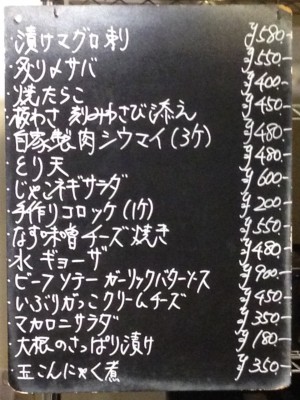 ・漬けマグロ刺 ¥580-
・炙り〆サバ ¥550-
・焼たらこ ¥400-
・板わさ 刻みわさび添え ¥450-
・自家製肉シウマイ(3ケ) ¥480-
・とり天 ¥480-
・じゃこネギサラダ ¥600-
・手作りコロッケ(1ケ) ¥200-
・なす味噌チーズ焼き ¥550-
・水ギョーザ ¥480-
・ビーフソテーガーリックバターソース ¥900-
・いぶりがっこクリームチーズ ¥450-
・マカロニサラダ ¥350-
・大根のさっぱり漬け ¥180-
・玉こんにゃく煮 ¥350-